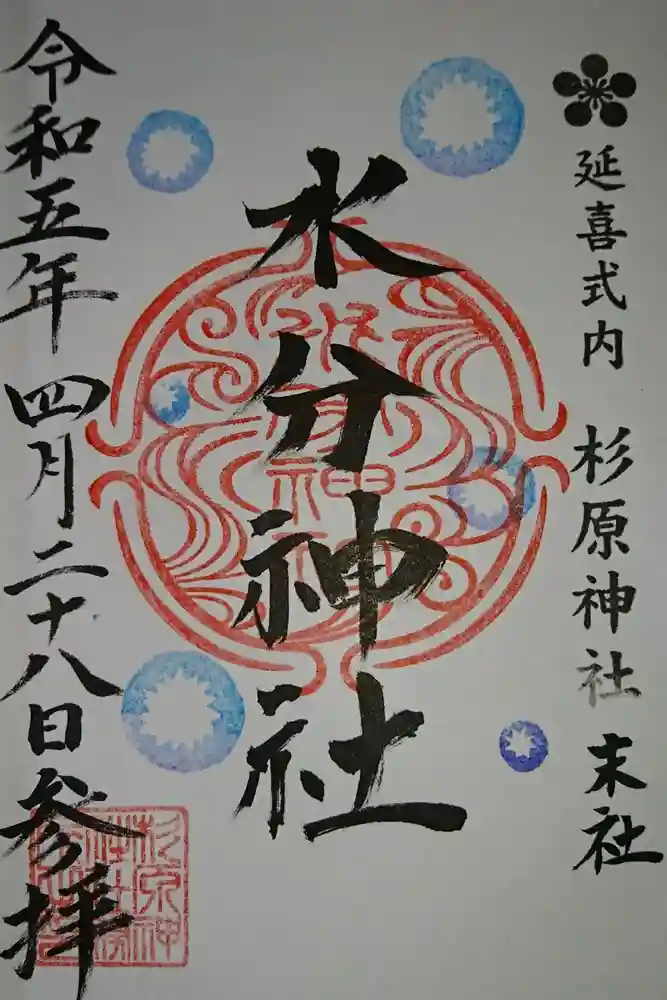 延喜式内 杉原神社 末社
水分神社
令和五年四月二十八日参拝
水分神社